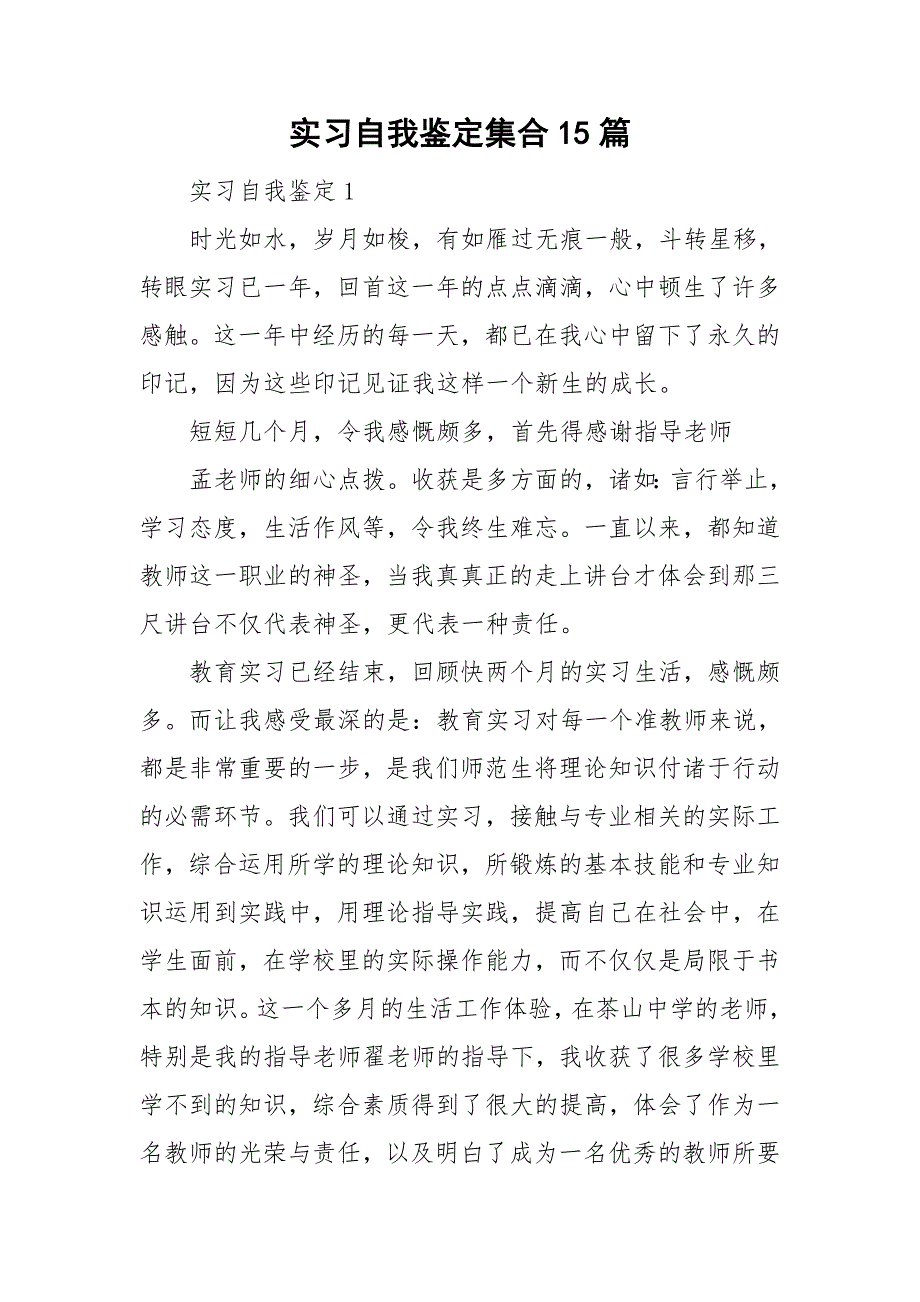 实习自我鉴定集合15篇
实习自我鉴定1
时光如水，岁月如梭，有如雁过无痕一般，斗转星移，
转眼实习已一年，回首这一年的点点滴滴，心中顿生了许多
感触。这一年中经历的每一天，都已在我心中留下了永久的
印记，因为这些印记见证我这样一个新生的成长。
短短几个月，令我感慨颇多，首先得感谢指导老师
孟老师的细心点拨。收获是多方面的，诸如：言行举止，
学习态度，生活作风等，令我终生难忘。一直以来，都知道
教师这一职业的神圣，当我真真正的走上讲台才体会到那三
尺讲台不仅代表神圣，更代表一种责任。
教育实习已经结束，回顾快两个月的实习生活，感慨颇
多。而让我感受最深的是：教育实习对每一个准教师来说，
都是非常重要的一步，是我们师范生将理论知识付诸于行动
的必需环节。我们可以通过实习，接触与专业相关的实际工
作，综合运用所学的理论知识，所锻炼的基本技能和专业知
识运用到实践中，用理论指导实践，提高自己在社会中，在
学生面前，在学校里的实际操作能力，而不仅仅是局限于书
本的知识。这一个多月的生活工作体验，在茶山中学的老师，
特别是我的指导老师翟老师的指导下，我收获了很多学校里
学不到的知识，综合素质得到了很大的提高，体会了作为一
名教师的光荣与责任，以及明白了成为一名优秀的教师所要